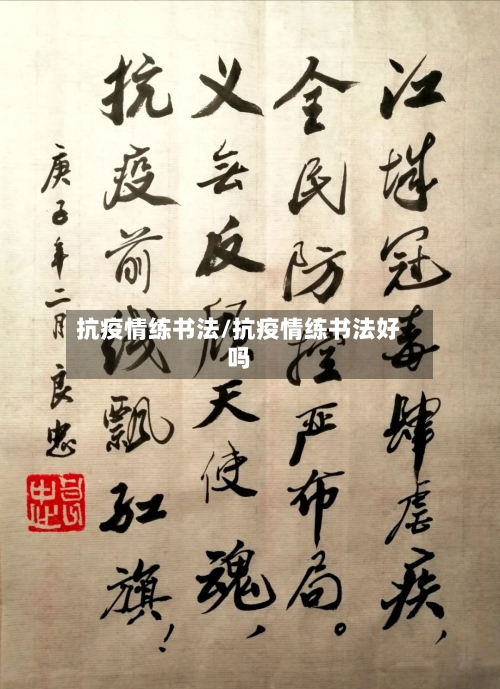 江城冠毒肆虐疾，
全民防控严布局。
义无反顾天使魂，
抗疫前线飘红旗！
庚子年二月良忠
抗疫情练书法/抗疫情练书法好
吗